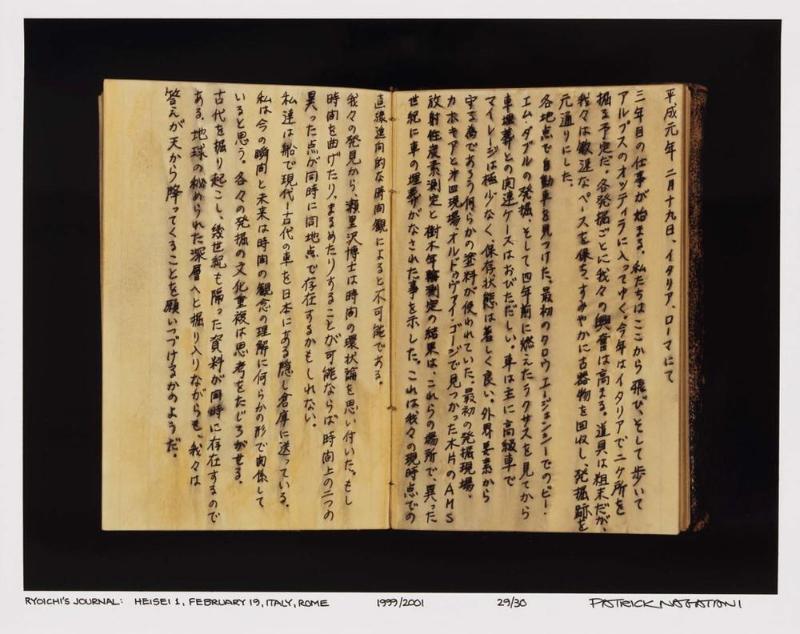 平成元年 二月十九日、イタリア、ローマにて
三年目の仕事が始まる。私たちはここから飛び、そして歩いて
アルプスのオッティラに入ってゆく。今年はイタリアで二ケ所を
掘る予定だ。各発掘ごとに我々の興奮は高まる。道具は粗末だが、
我々は敏速なペースを保ち、すみやかに古器物を回収し、発掘跡を
元通りにした。
各地点で自動車を見つけた。最初のタロウエージェンシーでの、ビー・
エム・ダブルの発掘、そして四年前に燃えたラクサスを見てから
車埋葬との関連ケースはおびただしい。車は主に高級車で
マイレージは極少なく、保存状態は著しく良い。外界要素から
守る為であろう何らかの塗料が使われていた。最初の発掘現場、
カホキアと第四現場、オルドゥヴァイ・ゴージで見つかった木片のAMS
放射性炭素測定と樹木年輪測定の結果は、これらの場所で、異った
世紀に車の埋葬がなされた事を示した。これは我々の現時点での
直線進向的な時間観によると不可能である。
我々の発見から、瀬里沢博士は時間の環状論を思い付いた。もし
時間を曲げたり、まるめたりすることが可能ならば時間上の二つの
異った点が同時に同地点で存在するかもしれない。
私達は船で現代!古代の車を日本にある隠し倉庫に送っている。
私は今の瞬間と未来は時間の観念の理解に何らかの形で関係して
いると思う。各々の発掘の文化重複は思考をたじろがせる。
古代を掘り起こし、幾世紀も隔った資料が同時に存在するので
ある。地球の秘められた深層へと掘り入りながらも、我々は
答えが天から降ってくることを願いつづけるかのようだ。
RYOICHI'S JOURNAL: HEISEI 1, FEBRUARY 19, ITALY, ROME 1999/2001 29/30 PATRICK NAGATANI